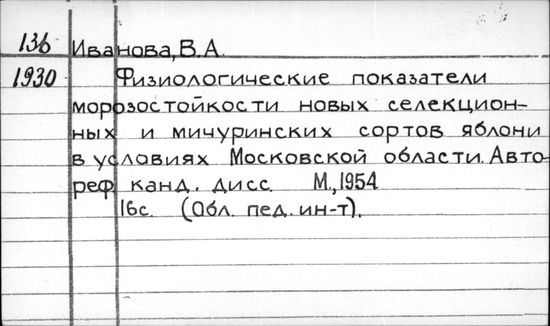 136 Иванова, В.А.
1930 Физиологические показатели
морозостойкости новых селекцион-
ных и мичуринских сортов яблони
в условиях Московской области. Авто-
реф канд. дисс. М., 1954
16с. (Обл. пед. ин-т).